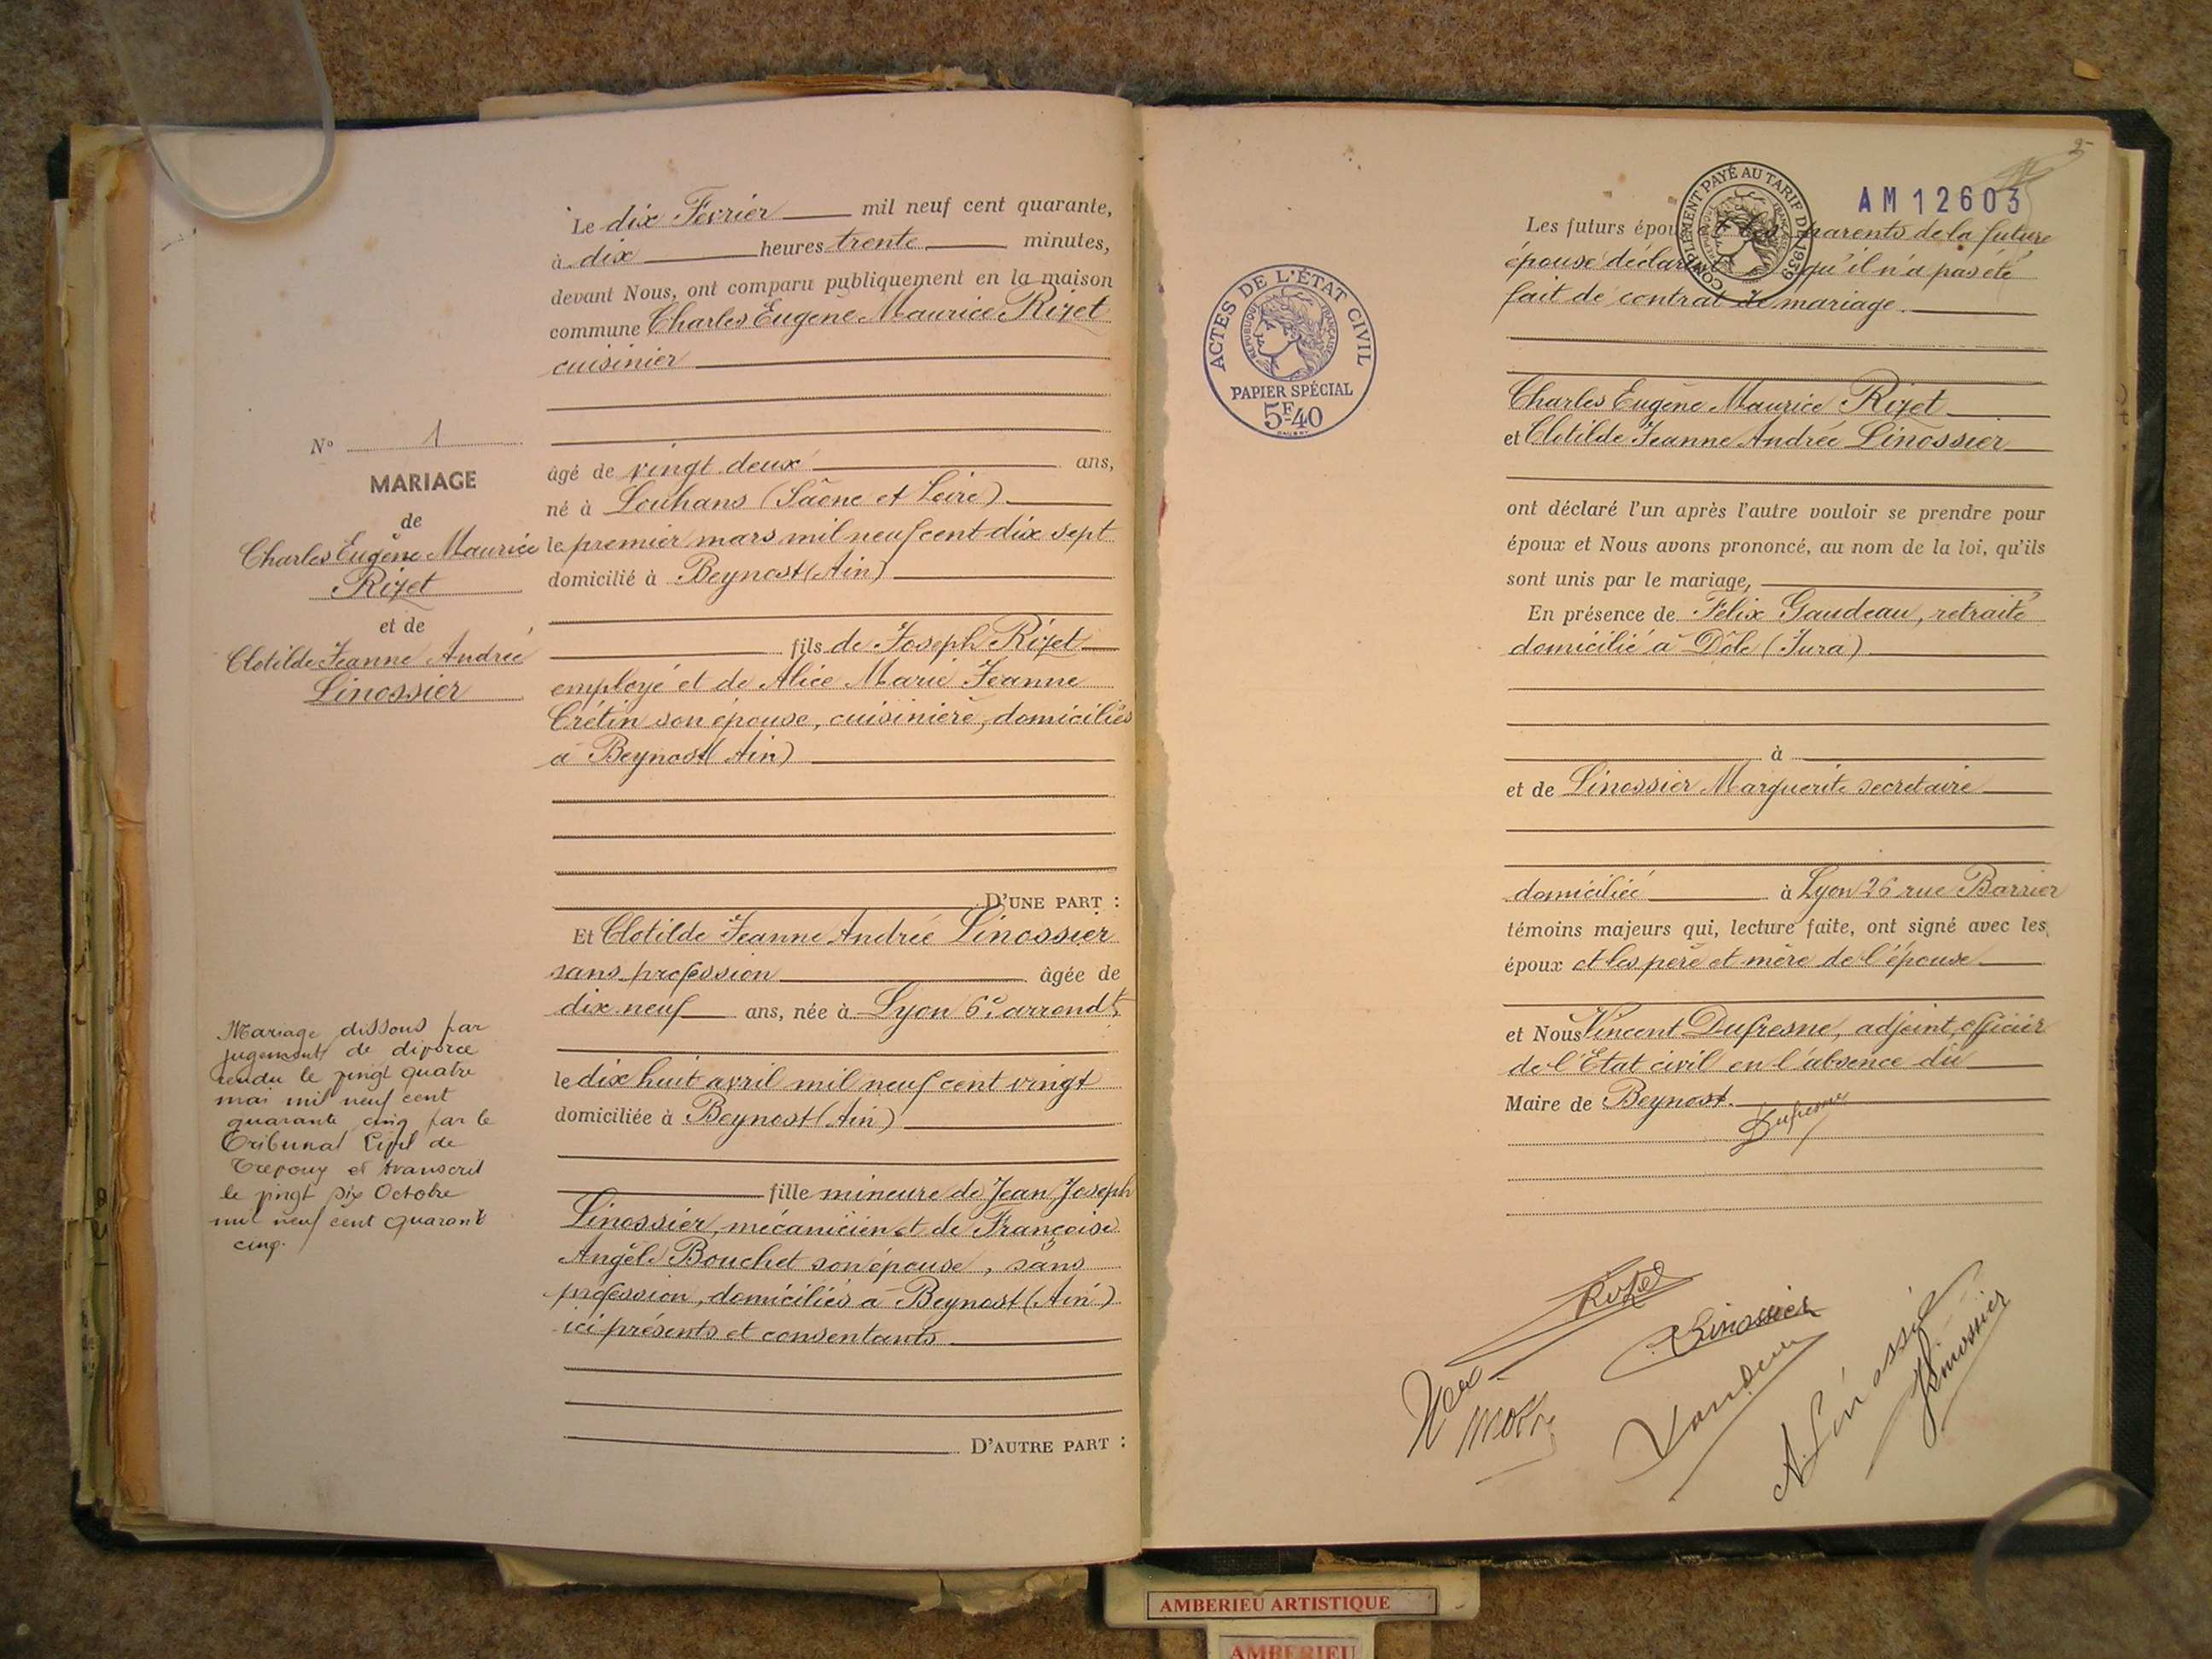 N° 1
MARIAGE
de
Charles Eugène Maurice
Rizet
et de
Clotilde Jeanne Andrée
Linossier
Mariage dissous par
jugement de divorce
rendu le vingt quatre
mai mil neuf cent
quarante cinq par le
Tribunal Civil de
Trevoux et transcrit
le vingt six Octobre
mil neuf cent quarante
cinq.
Le dix Février mil neuf cent quarante,
à dix heures trente minutes,
devant Nous, ont comparu publiquement en la maison
commune Charles Eugène Maurice Rizet
cuisinier
âgé de vingt deux ans,
né à Louhans (Saône et Loire)
le premier mars mil neuf cent dix sept
domicilié à Beynost (Ain)
fils de Joseph Rizet
employé et de Alice Marie Jeanne
Crétin son épouse, cuisinière, domiciliés
à Beynost (Ain)
D'UNE PART :
Et Clotilde Jeanne Andrée Linossier
sans profession âgée de
dix neuf ans, née à Lyon 6e arrondt
le dix huit avril mil neuf cent vingt
domiciliée à Beynost (Ain)
fille mineure de Jean Joseph
Linossier, mécanicien et de Françoise
Angèle Bouchet son épouse, sans
profession, domiciliés à Beynost (Ain)
ici présents et consentants
D'AUTRE PART :
2
AM12603
COMPLÉMENT PAYÉ AU TARIF DE 1939
ACTES DE L'ÉTAT CIVIL
RÉPUBLIQUE FRANÇAISE
PAPIER SPÉCIAL
5F40
Les futurs époux les parents de la future
épouse déclarent qu'il n'a pas été
fait de contrat de mariage
Charles Eugène Maurice Rizet
et Clotilde Jeanne Andrée Linossier
ont déclaré l'un après l'autre vouloir se prendre pour
époux et Nous avons prononcé, au nom de la loi, qu'ils
sont unis par le mariage,
En présence de Félix Gaudeau, retraité
domicilié à Dôle (Jura)
à
et de Linossier Marguerite secrétaire
domiciliée à Lyon 26 rue Barrier
témoins majeurs qui, lecture faite, ont signé avec les
époux et les père et mère de l'épouse
et Nous Vincent Dufresne, adjoint, officier
de l'Etat civil en l'absence du
Maire de Beynost.
Dufresne
Rizet
Linossier
A Linossier
Linossier
AMBERIEU ARTISTIQUE
AMBERIEU